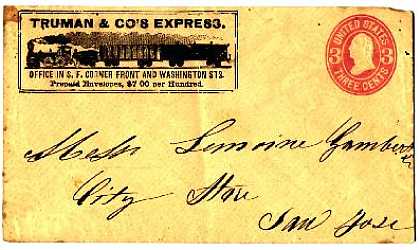 TRUMAN & CO'S EXPRESS.
OFFICE IN S. F. CORNER FRONT AND WASHINGTON STS.
Prepaid Envelopes, $7 00 per Hundred.
UNITED STATES
3 3
THREE CENTS
Messrs Lemoine Gambert
City Store
San Jose